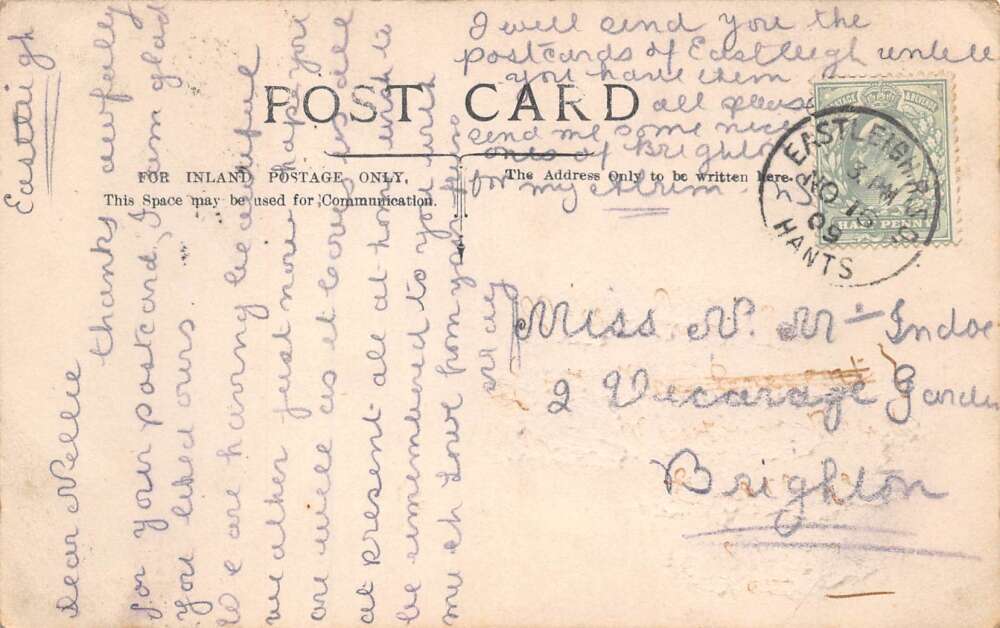 Eastleigh
Dear Nellie
thanks awfully
for your postcard, I am glad
you liked ours
We are having beautiful
weather just now hope you
are well as it leaves us all
at present all at home wish to
be remembered to you with
much Love from your friend
May
I will send you the
postcards of Eastleigh unless
you have them
all please
send me some nice
ones of Brighton
for my Album
POST CARD
FOR INLAND POSTAGE ONLY,
This Space may be used for Communication.
The Address Only to be written here.
EASTLEIGH R.S.O.
3. PM
NO 15
09
HANTS
HALF PENNY
Miss N. Mc Indoe
2 Vecarage Garde
Brighton